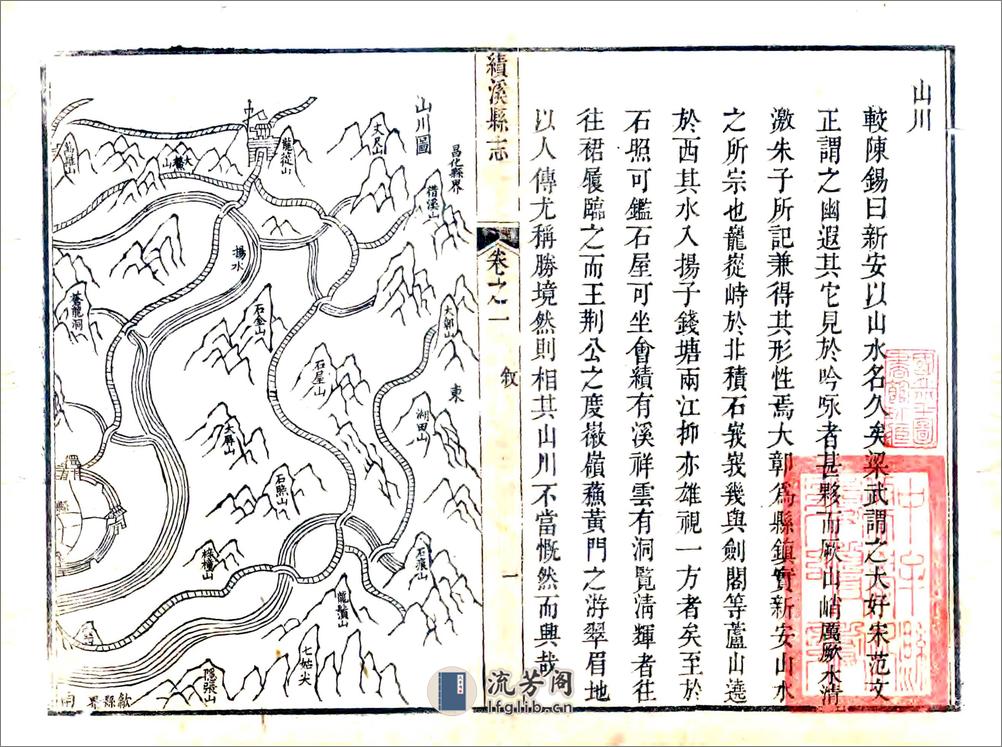 山川
較陳錫曰新安以山水名久矣梁武謂之大好宋范文
正謂之幽遐其它見於吟咏者甚夥而厥山峭厲厥水清
激朱子所記兼得其形性焉大鄣爲縣鎮實新安山水
之所宗也龍㟅峙於北積石峩峩幾與劍閣等蘆山遶
於西其水入揚子錢塘兩江抑亦雄視一方者矣至於
石照可鑑石屋可坐會績有溪祥雲有洞覽淸輝者往
往裙屐臨之而王荆公之度嶶嶺蘓黃門之游翠眉地
以人傳尤稱勝境然則相其山川不當慨然而興哉
績溪縣志
卷之一
敘
一
山川圖
昌化縣界
丈尖山
龍㟅山
大鏊山
借溪山
揚水
蒼龍洞
石金山
大鄣山
東
石屋山
湖田山
大屏山
石照山
梓橦山
石㾗山
龍鬚山
七姑尖
隱張山
歙縣界
南
流芳阁
lfglib.cn